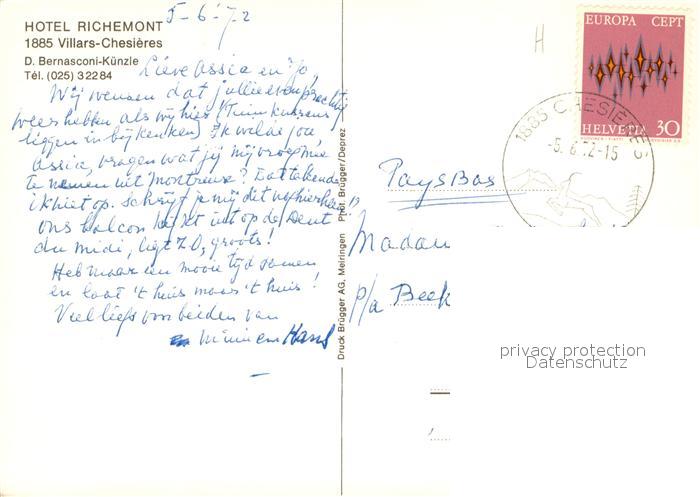 HOTEL RICHEMONT
1885 Villars-Chesières
D. Bernasconi-Künzle
Tél. (025) 32284
5-6-72
Lieve Assia en Jo,
Wij wensen dat jullie even prachtig
weer hebben als wij hier (Tuinkussens
liggen in bijkeuken) Ik wilde jou
Assia, vragen wat jij mij vroeg mee
te nemen uit Montreux?
ik niet op. Schrijf je mij dit nog hierheen?
ons balcon kijkt uit op de Dent
du Midi, ligt Z.O, groots!
Heb maar een mooie tijd samen
en laat 't huis maar 't huis!
Veel liefs voor beiden van
Mimi en Hans
Druck Brügger AG, Meiringen Phot. Brügger/Deprez
H
EUROPA CEPT
HELVETIA 30
1885 CHESIÈRES
-5.6.72-15
Pays Bas
Madam
p/a Beek
privacy protection
Datenschutz